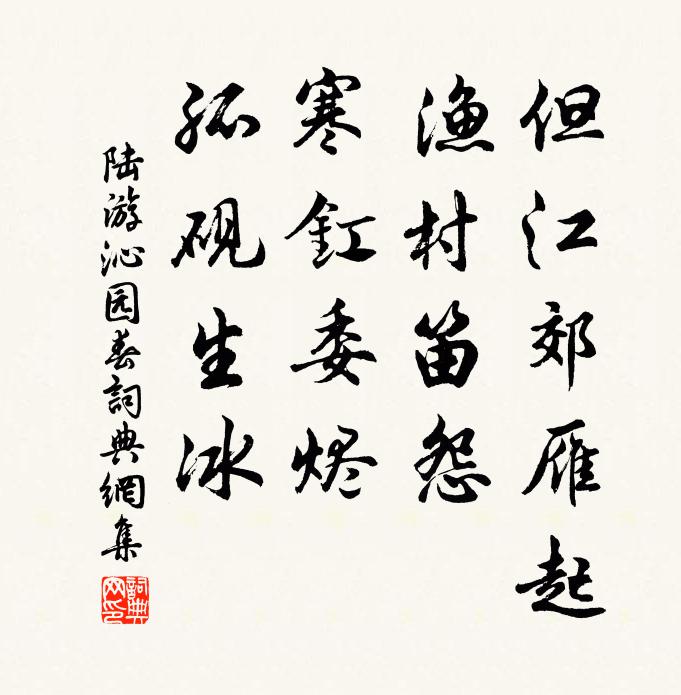 但江郊雁起
渔村笛怨
寒釭委烬
孤砚生冰
陆游沁园春詞典網集
詞典
网印